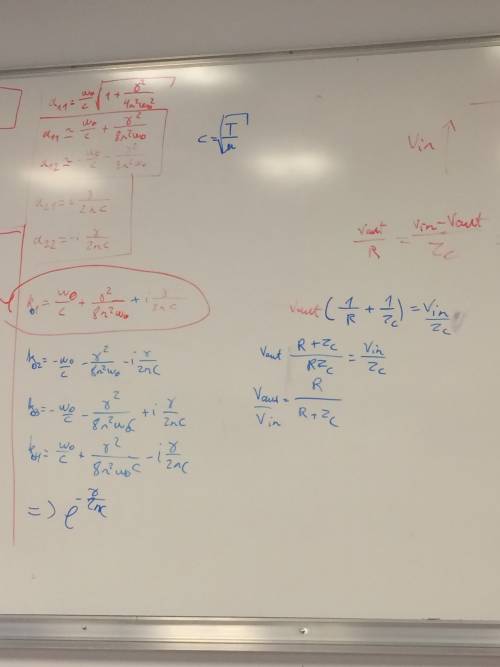 a₁₁ = ω₀/c √(1 + γ²/(4π²ω₀²))
a₁₁ ≃ ω₀/c + γ²/(8π²ω₀)
a₁₂ ≃ -ω₀/c - γ²/(8π²ω₀)
a₂₁ = + γ/(2πc)
a₂₂ = -i γ/(2πc)
k₀₁ = ω₀/c + γ²/(8π²ω₀) + i γ/(2πc)
k₀₂ = -ω₀/c - γ²/(8π²ω₀) - i γ/(2πc)
k₀₃ = -ω₀/c - γ²/(8π²ω₀c) + i γ/(2πc)
k₀₄ = ω₀/c + γ²/(8π²ω₀c) - i γ/(2πc)
=> e^(-γ/(2πc))
c = √(T/μ)
Vin ↑
Vout/R = (Vin - Vout)/Zc =
Vout (1/R + 1/Zc) = Vin/Zc
Vout (R + Zc)/(RZc) = Vin/Zc
Vout/Vin = R/(R + Zc)